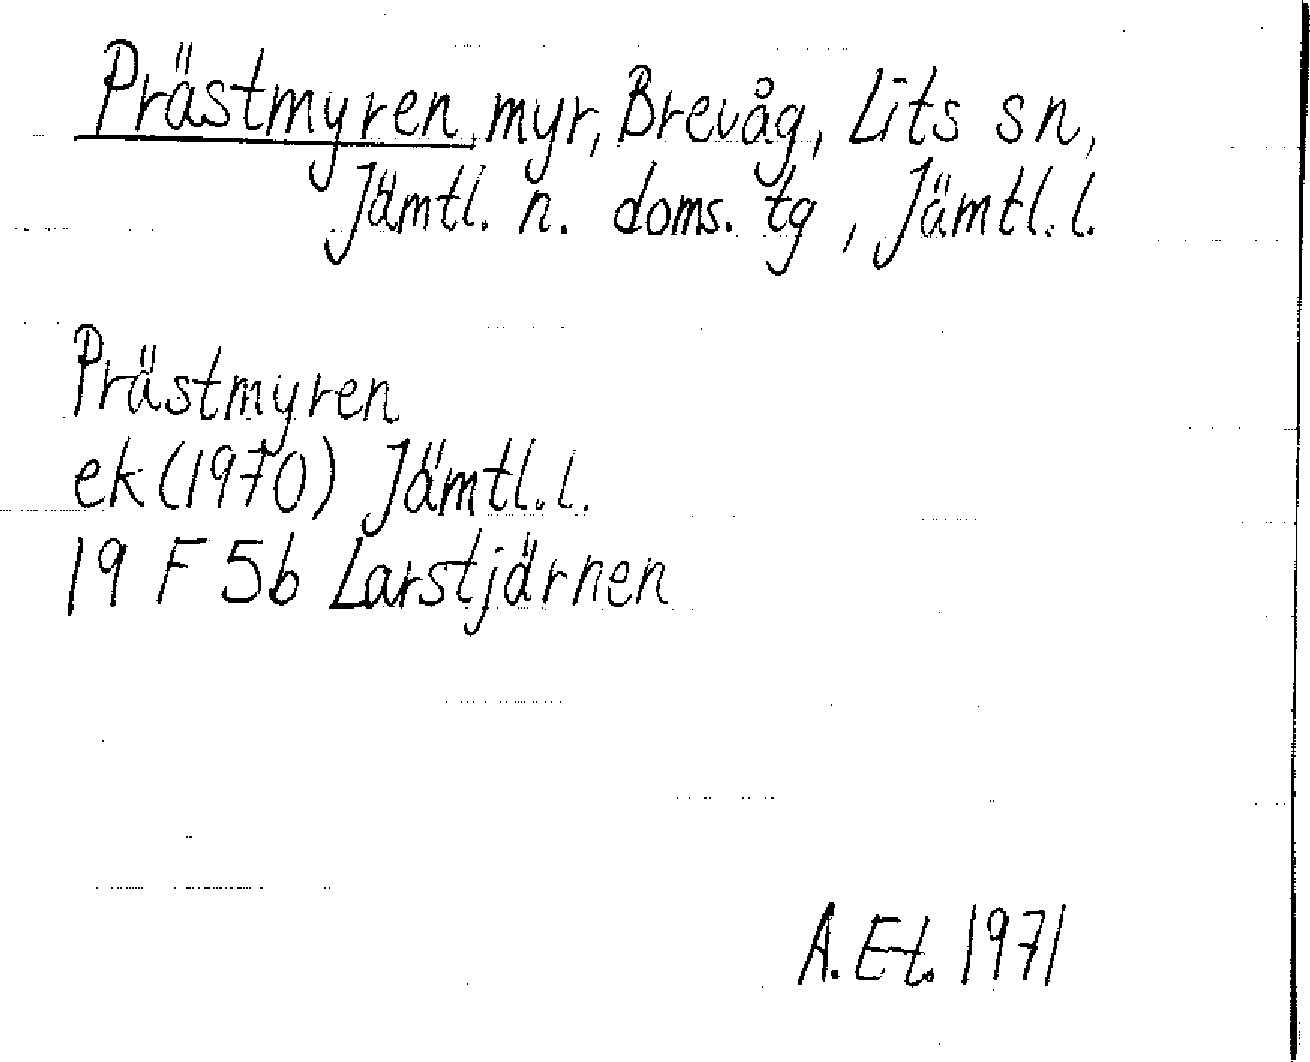 Prästmyren myr, Brevåg, Lits sn,
Jämtl. n. doms. tg, Jämtl. l.
Prästmyren
ek (1970) Jämtl. l.
19 F 5b Larstjärnen
A. Et. 1971